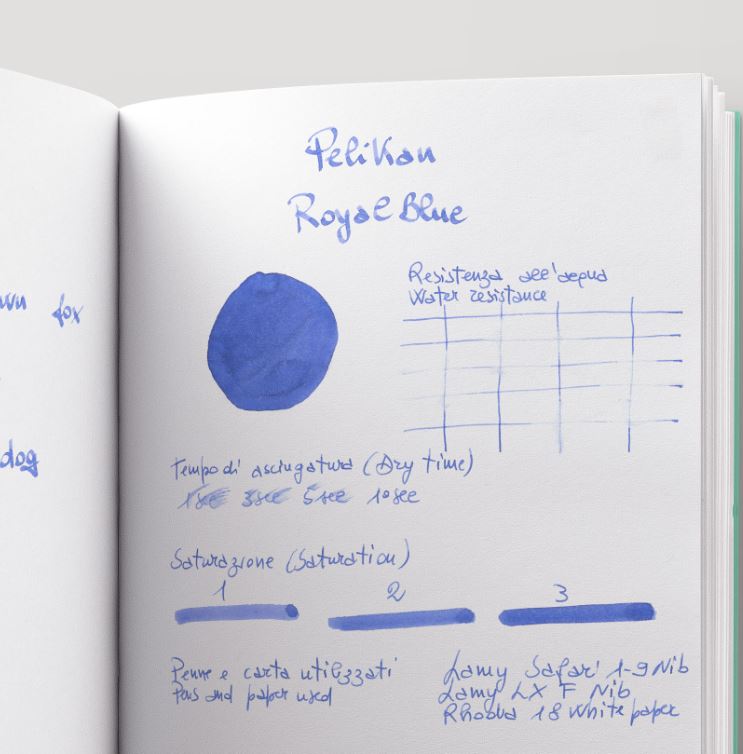 wn fox
dog
Pelikan
Royal Blue
Resistenza all'acqua
Water resistance
Tempo di asciugatura (Dry time)
1sec 3sec 5sec 10sec
Saturazione (Saturation)
1 2 3
Penne e carta utilizzati
Pens and paper used
Lamy Safari 1.9 Nib
Lamy LX F Nib
Rhodia 18 White paper